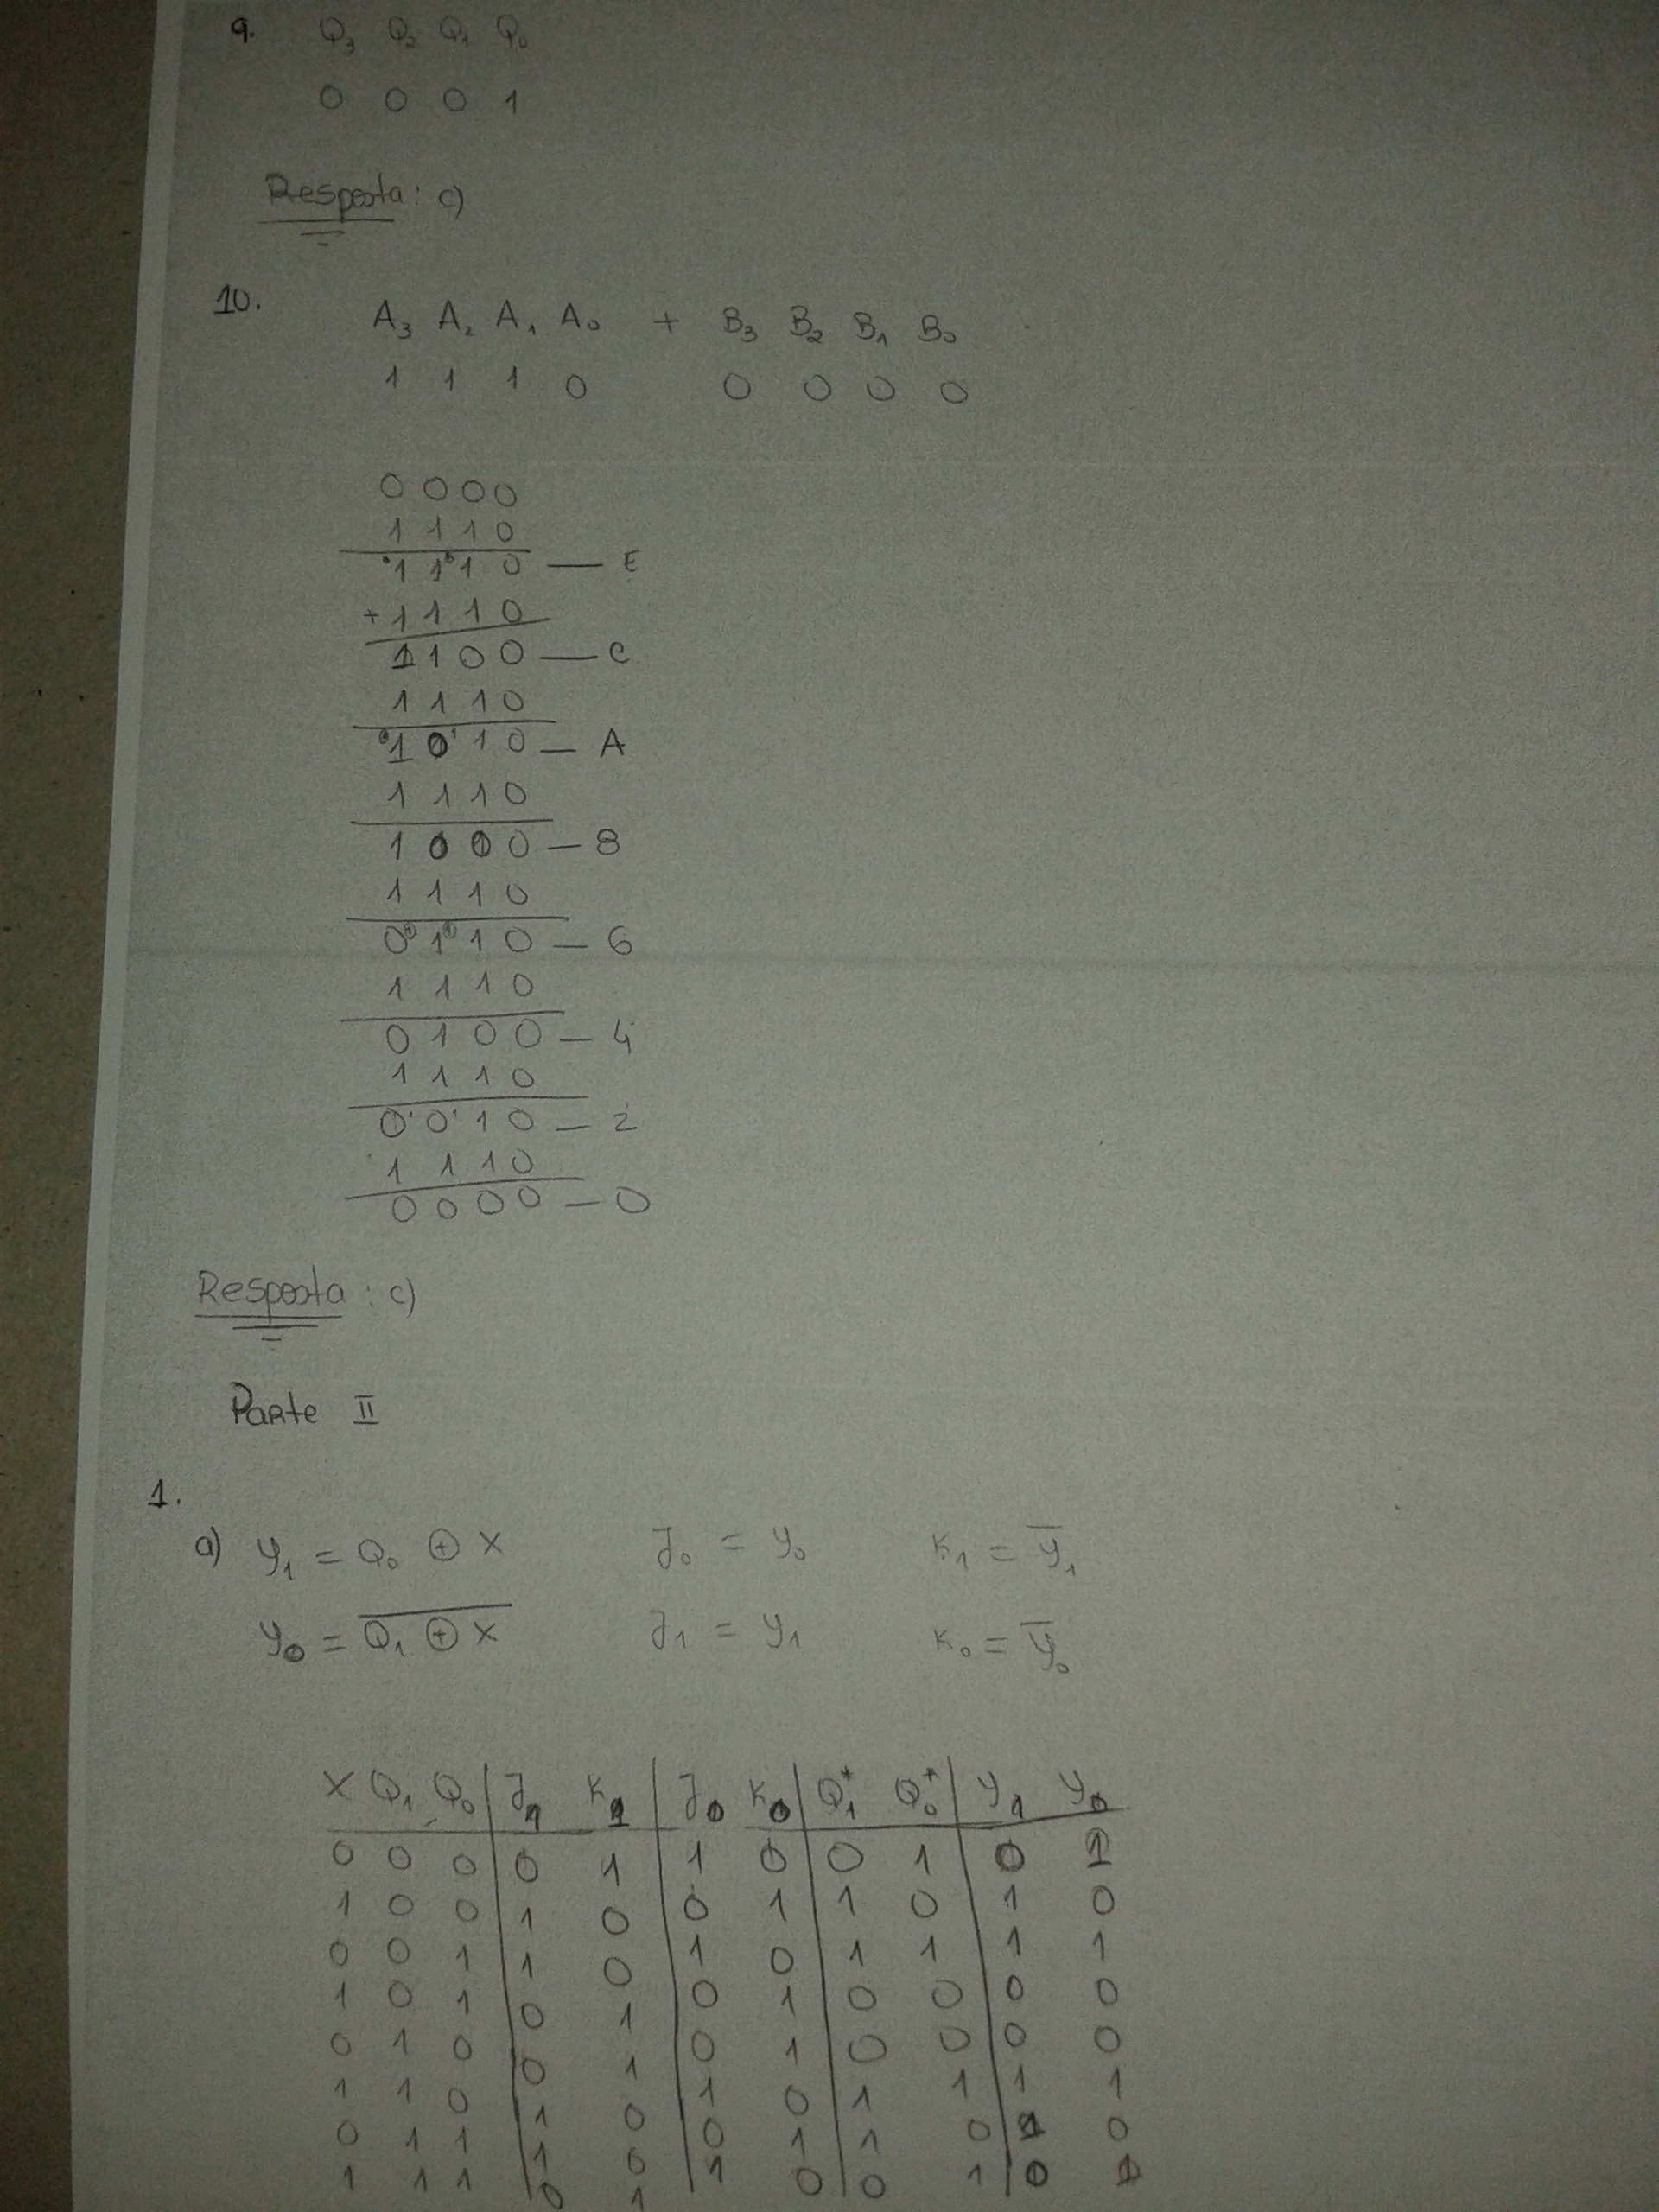 9. Q₃ Q₂ Q₁ Q₀
0 0 0 1
Resposta: c)
10. A₃ A₂ A₁ A₀ + B₃ B₂ B₁ B₀
1 1 1 0 0 0 0 0
0 0 0 0
1 1 1 0
1 1 1 0 — E
+ 1 1 1 0
1 1 0 0 — C
1 1 1 0
1 0 1 0 — A
1 1 1 0
1 0 0 0 — 8
1 1 1 0
0 1 1 0 — 6
1 1 1 0
0 1 0 0 — 4
1 1 1 0
0 0 1 0 — 2
1 1 1 0
0 0 0 0 — 0
Resposta: c)
Parte II
1.
a) y₁ = Q₀ ⊕ X J₀ = y₀ K₁ = y̅₁
y₀ = \overline{Q₁ ⊕ X} J₁ = y₁ K₀ = y̅₀
X Q₁ Q₀ | J₁ K₁ | J₀ K₀ | Q₁* Q₀* | y₁ y₀
0 0 0 | 0 1 | 1 0 | 0 1 | 0 1
1 0 0 | 1 0 | 0 1 | 1 0 | 1 0
0 0 1 | 1 0 | 1 0 | 1 1 | 1 1
1 0 1 | 0 1 | 0 1 | 0 0 | 0 0
0 1 0 | 0 1 | 0 1 | 0 0 | 0 0
1 1 0 | 1 0 | 1 0 | 1 1 | 1 1
0 1 1 | 1 0 | 0 1 | 1 0 | 1 0
1 1 1 | 0 1 | 1 0 | 0 1 | 0 1